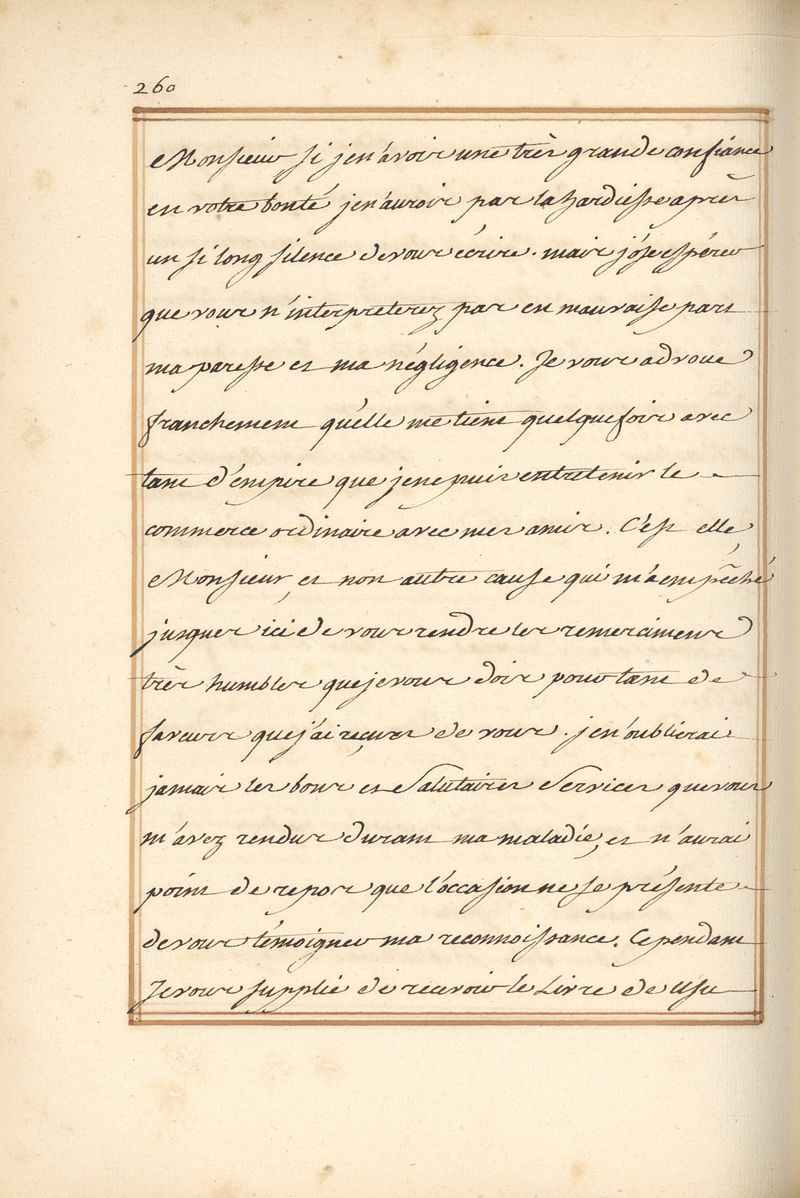 260
Monsieur si je n'avois une très grande confiance
en votre bonté je n'aurois pas la hardiesse après
un si long silence de vous écrire. mais j'ôse espérer
que vous n'interpreterez pas en mauvaise part
ma paresse et ma négligence. Je vous advoue
franchement qu'elle me tient quelquefois avec
tant d'empire que je ne puis entretenir le
commerce ordinaire avec mes amis. C'est elle,
Monsieur, et non autre cause qui m'a empêché
jusques ici de vous rendre les remerciments
très humbles que je vous dois pour tant de
faveurs que j'ai reçues de vous. je n'oublierai
jamais les bons et Salutaires Services que vous
m'avez rendus durant ma maladie, et n'aurai
point de repos que l'occasion ne se présente
de vous témoigner ma reconnoissance. Cependant
Je vous supplie de recevoir le Livre de Usu